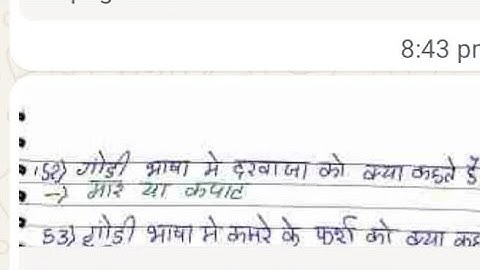 8:43 pr
52) गोंडी भाषा मे दरवाजा को क्या कहते है
→ मार या कपाट
53) गोंडी भाषा मे कमरे के फर्श को क्या कह